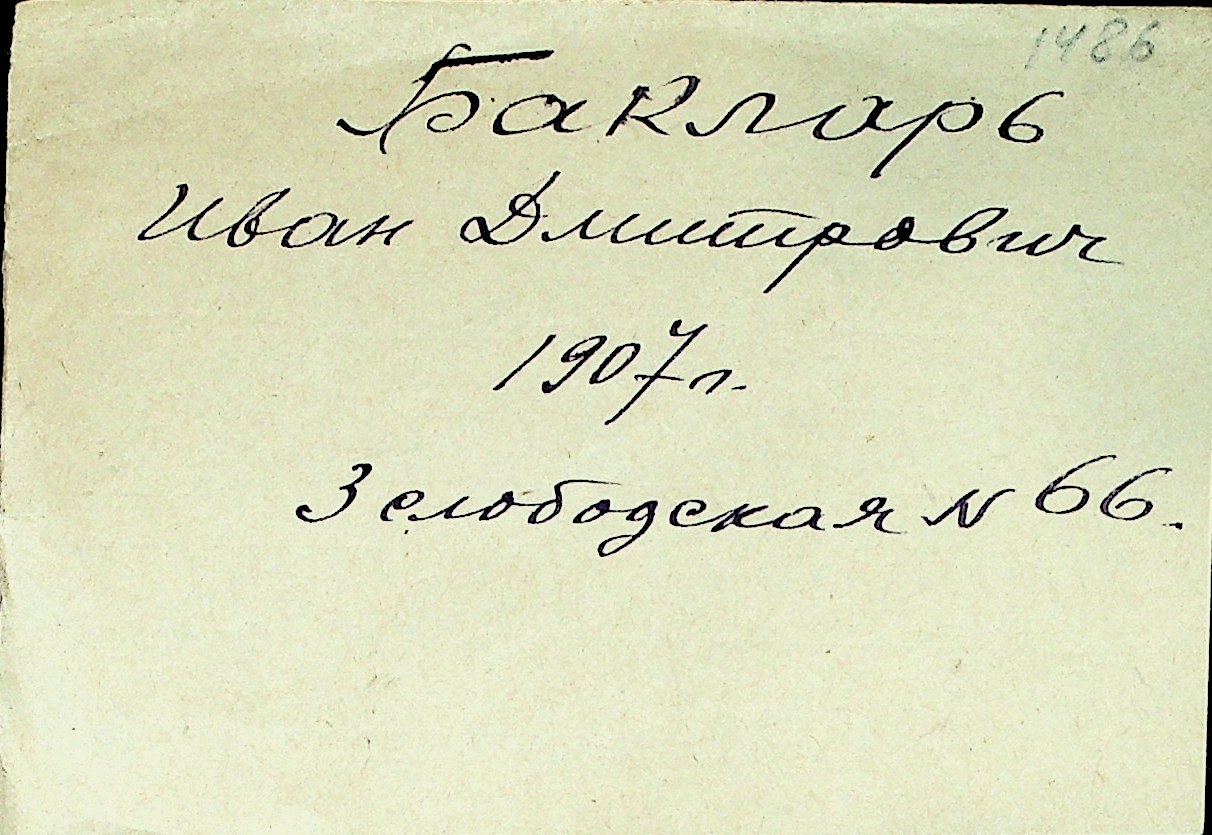 1486
Бакларь
Иван Дмитрович
1907 г.
3 слободская N 66.